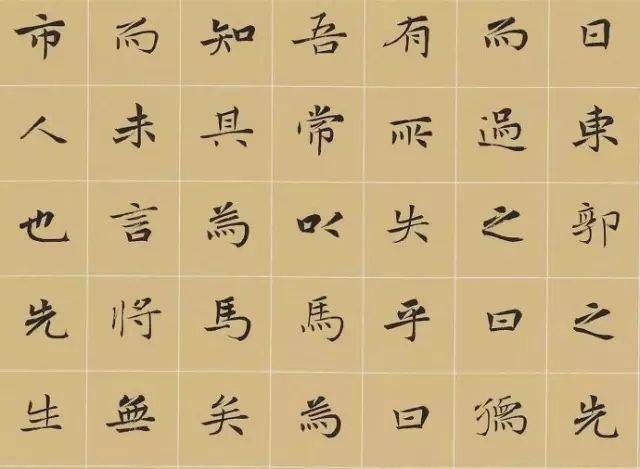 日東郭之先
而過之曰
有所失乎曰
吾常以馬為
知具為馬矣
而未言將無
市人也先生